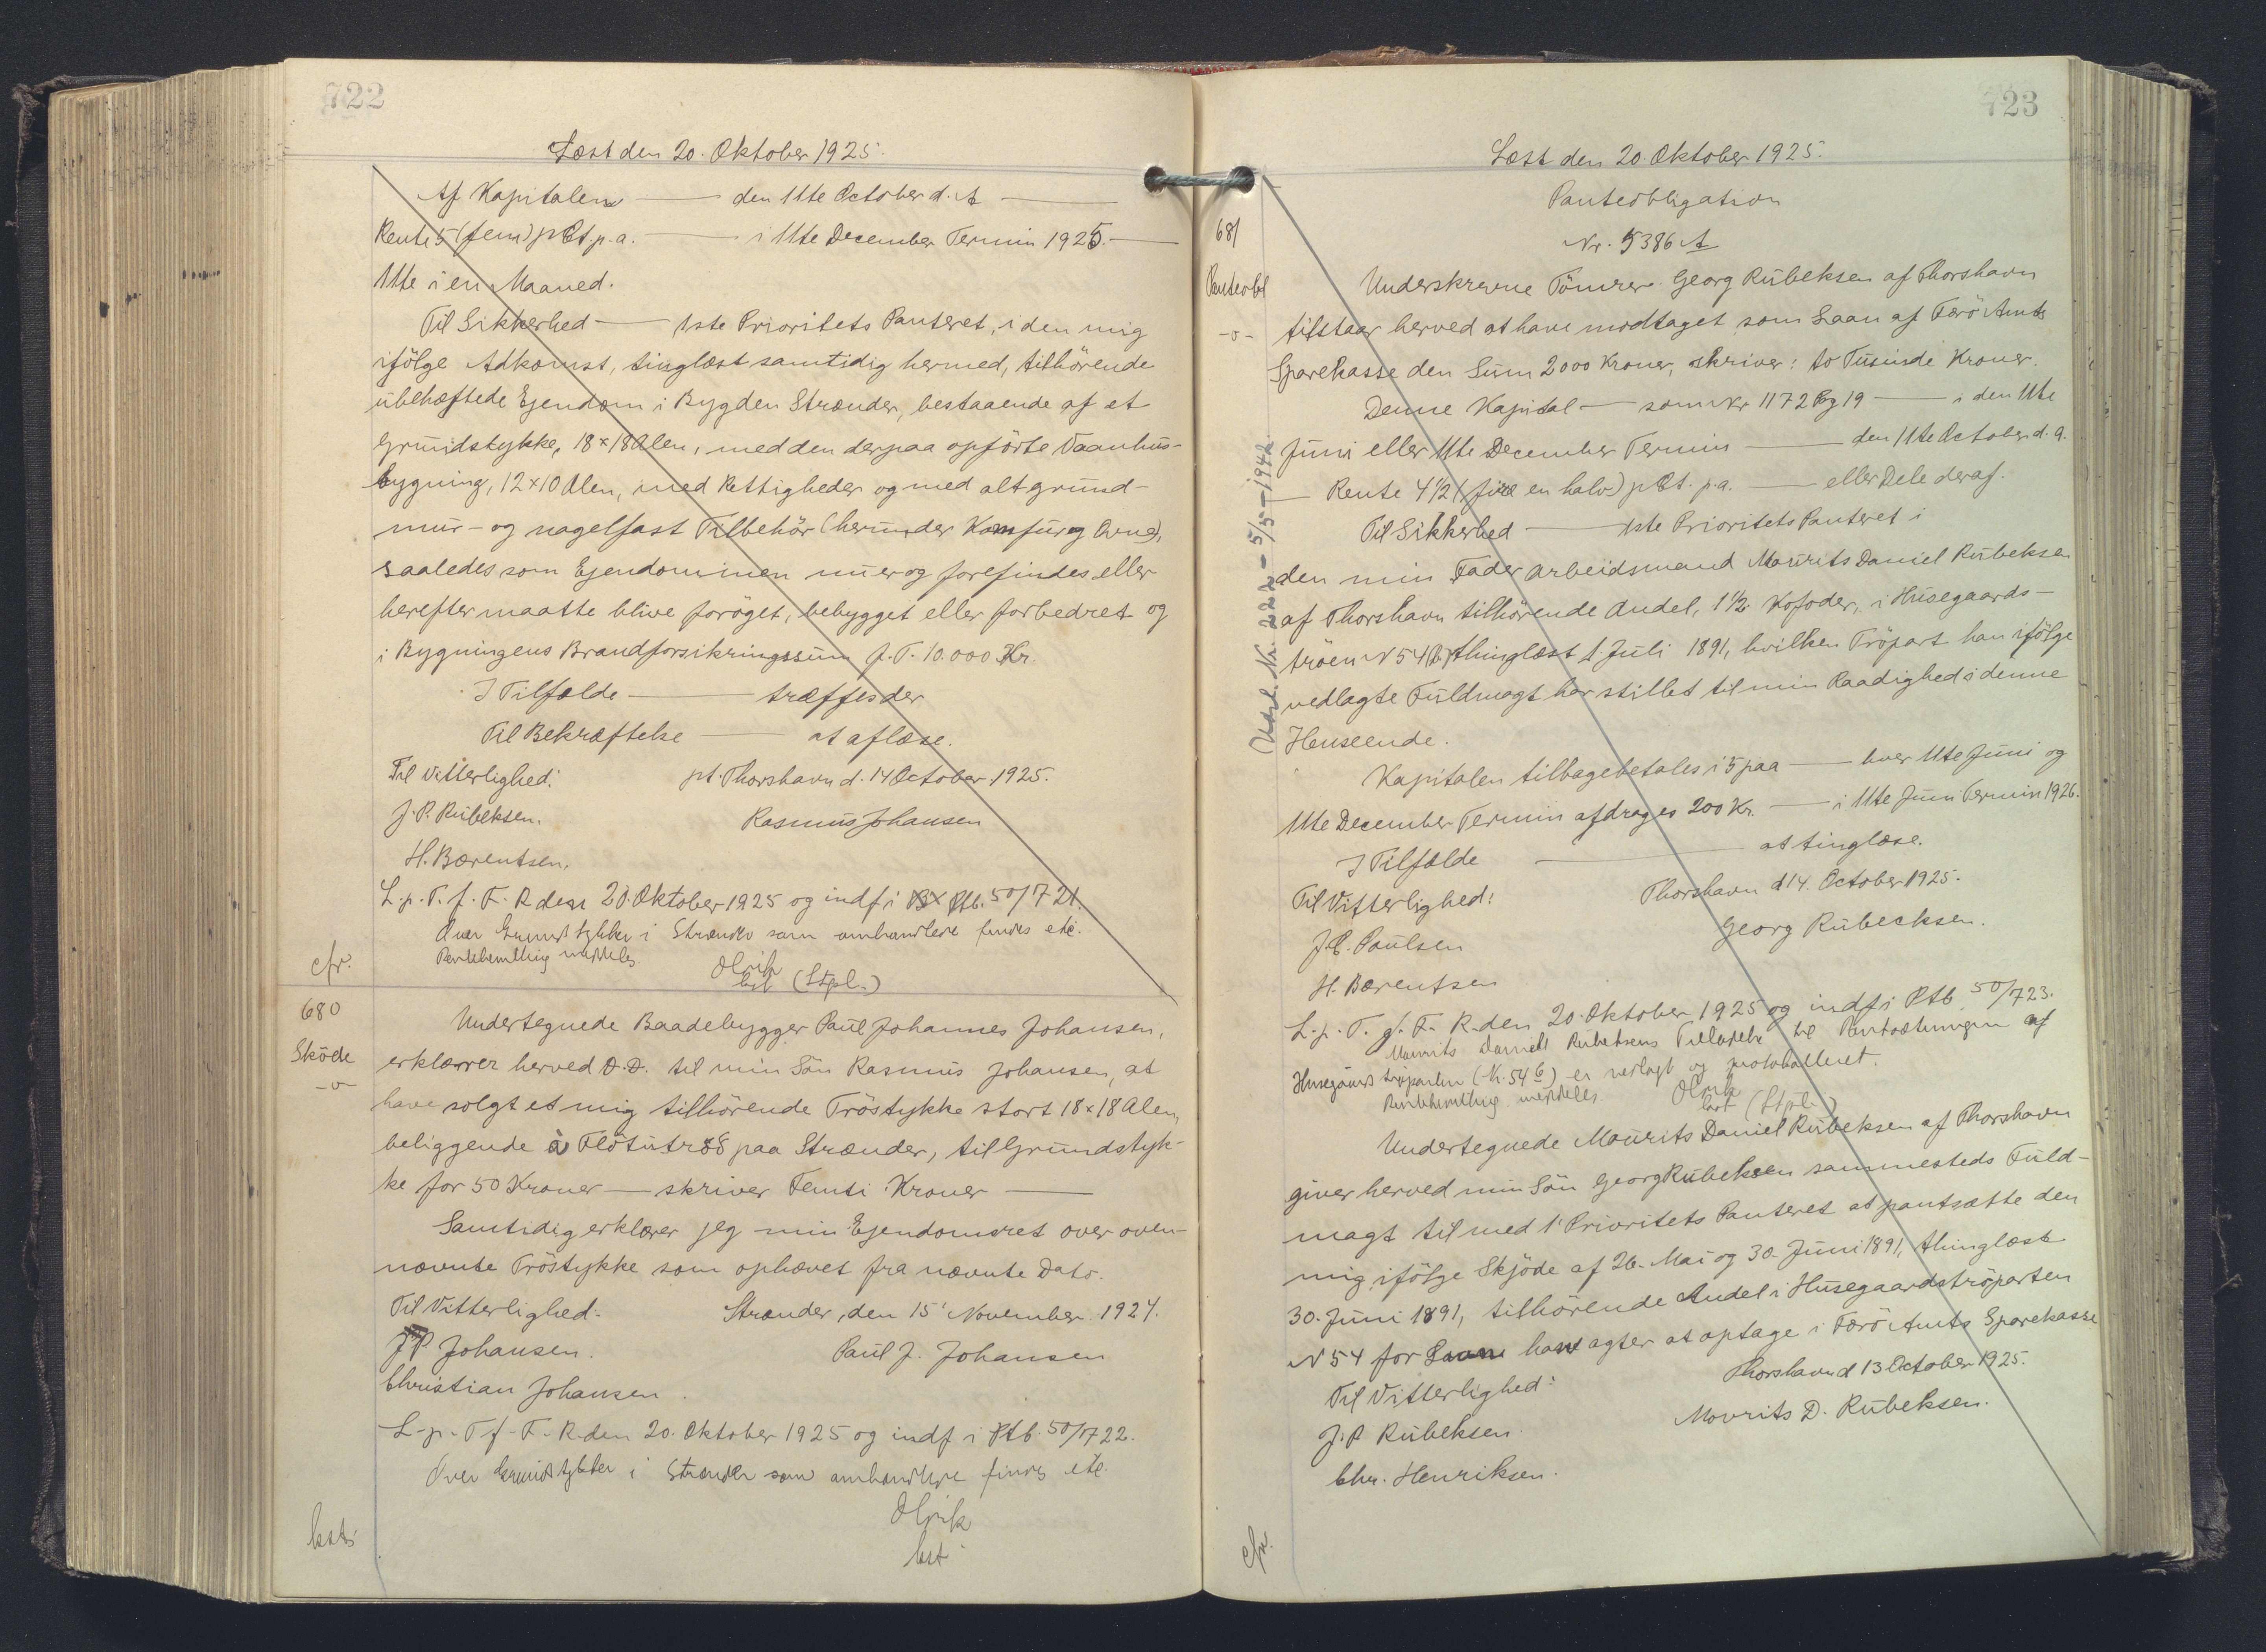 722
Læst den 20. Oktober 1925.
Af Kapitalen — den 11te October d. A —
Rente 5 (fem) pCt. p. a. — i 11te December Termin 1925. —
11te i en Maaned.
Til Sikkerhed — 1ste Prioritets Panteret, i den mig
ifölge Adkomst, tinglæst samtidig hermed, tilhörende
ubehæftede Ejendom i Bygden Strænder, bestaaende af et
Grundstykke, 18 × 18 Alen, med den derpaa opförte Vaanhus-
bygning, 12 × 10 Alen, med Rettigheder og med alt grund-
mur- og nagelfast Tilbehör (herunder Komfur og Ovne),
saaledes som Ejendommen nu er og forefindes eller
herefter maatte blive foröget, bebygget eller forbedret og
i Bygningens Brandforsikringssum p. T. 10.000 Kr.
I Tilfælde — træffes der
Til Bekræftelse — at aflæse.
Til Vitterlighed: pt. Thorshavn d. 14 October 1925.
J. P. Rubeksen. Rasmus Johansen
H. Bærentsen.
L. p. T. f. F. R den 20. Oktober 1925 og indf i Ptb. 50/721.
Over Grundstykke i Strænder som omhandlede findes etc.
Pantehæftelse meddeles
Olrik
cfr. kst (Stpl.)
680
Sköde
-o-
Undertegnede Baadebygger Paul Johannes Johansen,
erklærer herved D.D. til min Sön Rasmus Johansen, at
have solgt et mig tilhörende Tröstykke stort 18 × 18 Alen,
beliggende à Flötutröð paa Strænder, til Grundstyk-
ke for 50 Kroner — skriver Femti Kroner —
Samtidig erklærer jeg min Ejendomsret over oven-
nævnte Tröstykke som ophævet fra nævnte Dato.
Til Vitterlighed: Strænder, den 15' November 1924.
J P Johansen. Paul J. Johansen
Christian Johansen.
L. p. T f. F. R. den 20. Oktober 1925 og indf i Ptb. 50/722.
Over Grundstykket i Strænder som omhandlede findes etc.
Olrik
kst
723
Læst den 20. Oktober 1925.
Panteobligation
Nr. 5386 A
681
Panteobl
-o-
Underskrevne Tömrer Georg Rubeksen af Thorshavn
tilstaar herved at have modtaget som Laan af Færö Amts
Sparekasse den Sum 2000 Kroner, skriver: to Tusinde Kroner.
Denne Kapital — som Nr 1172 Pg 19 — i den 11te
Juni eller 11te December Termin — den 11te October d. a.
— Rente 4½ (fire en halv) pCt. p a. — eller Dele deraf.
Til Sikkerhed — 1ste Prioritets Panteret i
den min Fader Arbeidsmand Maurits Daniel Rubeksen
af Thorshavn tilhörende Andel, 1½ Kofoder, i Husegaards-
tröen N 54 (b) thinglæst 1. Juli 1891, hvilken Tröpart han ifölge
vedlagte Fuldmagt har stillet til min Raadighed i denne
Henseende.
Udsl. Nr. 222 - 5/5 - 1942.
Kapitalen tilbagebetales i 5 paa — hver 11te Juni og
11te December Termin afdrages 200 Kr. — i 11te Juni Termin 1926.
I Tilfælde — at tinglæse.
Til Vitterlighed: Thorshavn d 14. October 1925.
J. C. Paulsen Georg Rubecksen.
H. Bærentsen
L. p. T. f. F. R. den 20. Oktober 1925 og indf i Ptb. 50/723.
Maurits Daniel Rubeksens Tilladelse til Pantsætningen af
Husegaards tröparten (N. 54 b) er vedlagt og protokolleret.
Pantehæftelse meddeles. Olrik
kst (Stpl.)
Undertegnede Maurits Daniel Rubeksen af Thorshavn
giver herved min Sön Georg Rubeksen sammesteds Fuld-
magt til med 1' Prioritets Panteret at pantsætte den
mig ifölge Skjöde af 26. Mai og 30. Juni 1891, thinglæst
30. Juni 1891, tilhörende Andel i Husegaardströparten
N 54 for Laan han agter at optage i Færö Amts Sparekasse
Thorshavn d 13 October 1925.
Til Vitterlighed:
J. P Rubeksen Mourits D. Rubeksen.
Chr. Henriksen.
cfr.